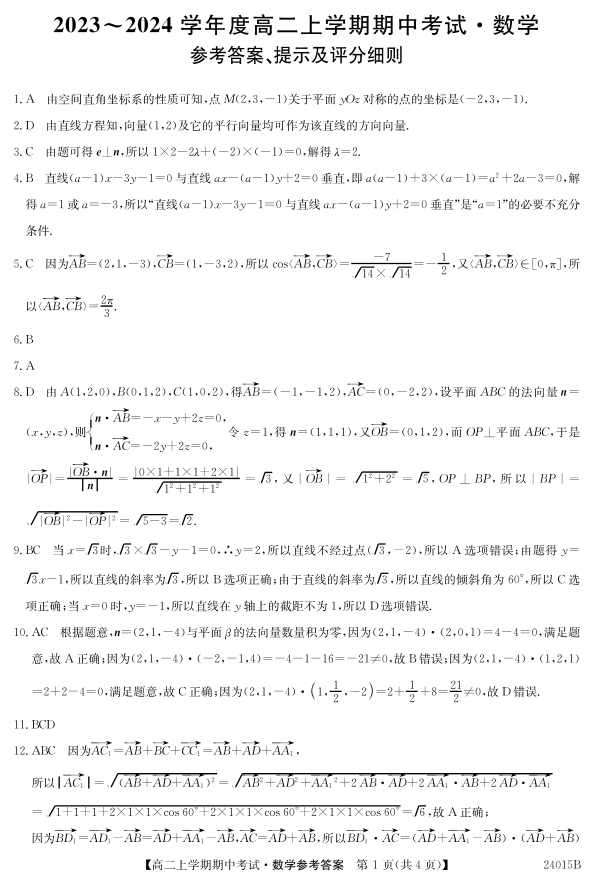 2023～2024 学年度高二上学期期中考试·数学
参考答案、提示及评分细则
1. A　由空间直角坐标系的性质可知,点 M(2,3,−1)关于平面 yOz 对称的点的坐标是(−2,3,−1).
2. D　由直线方程知,向量(1,2)及它的平行向量均可作为该直线的方向向量.
3. C　由题可得 e⊥n,所以 1×2−2λ+(−2)×(−1)=0,解得 λ=2.
4. B　直线(a−1)x−3y−1=0 与直线 ax−(a−1)y+2=0 垂直,即 a(a−1)+3×(a−1)=a²+2a−3=0,解
得 a=1 或 a=−3,所以“直线(a−1)x−3y−1=0 与直线 ax−(a−1)y+2=0 垂直”是“a=1”的必要不充分
条件.
5. C　因为AB→=(2,1,−3),CB→=(1,−3,2),所以 cos⟨AB→,CB→⟩=−7/(√14×√14)=−1/2,又⟨AB→,CB→⟩∈[0,π],所
以⟨AB→,CB→⟩=2π/3.
6. B
7. A
8. D　由 A(1,2,0),B(0,1,2),C(1,0,2),得AB→=(−1,−1,2),AC→=(0,−2,2),设平面 ABC 的法向量 n=
(x,y,z),则{n·AB→=−x−y+2z=0, n·AC→=−2y+2z=0, 令 z=1,得 n=(1,1,1),又OB→=(0,1,2),而 OP⊥平面 ABC,于是
|OP→|=|OB→·n|/|n|=|0×1+1×1+2×1|/√(1²+1²+1²)=√3,又|OB→|=√(1²+2²)=√5,OP⊥BP,所以|BP|=
√(|OB→|²−|OP→|²)=√(5−3)=√2.
9. BC　当 x=√3时,√3×√3−y−1=0,∴y=2,所以直线不经过点(√3,−2),所以 A 选项错误;由题得 y=
√3x−1,所以直线的斜率为√3,所以 B 选项正确;由于直线的斜率为√3,所以直线的倾斜角为 60°,所以 C 选
项正确;当 x=0 时,y=−1,所以直线在 y 轴上的截距不为 1,所以 D 选项错误.
10. AC　根据题意,n=(2,1,−4)与平面 β 的法向量数量积为零,因为(2,1,−4)·(2,0,1)=4−4=0,满足题
意,故 A 正确;因为(2,1,−4)·(−2,−1,4)=−4−1−16=−21≠0,故 B 错误;因为(2,1,−4)·(1,2,1)
=2+2−4=0,满足题意,故 C 正确;因为(2,1,−4)·(1,1/2,−2)=2+1/2+8=21/2≠0,故 D 错误.
11. BCD
12. ABC　因为AC₁→=AB→+BC→+CC₁→=AB→+AD→+AA₁→,
所以|AC₁→|=√(AB→+AD→+AA₁→)²=√(AB→²+AD→²+AA₁→²+2AB→·AD→+2AA₁→·AB→+2AD→·AA₁→)
=√(1+1+1+2×1×1×cos 60°+2×1×1×cos 60°+2×1×1×cos 60°)=√6,故 A 正确;
因为BD₁→=AD₁→−AB→=AD→+AA₁→−AB→,AC→=AD→+AB→,所以BD₁→·AC→=(AD→+AA₁→−AB→)·(AD→+AB→)
【高二上学期期中考试·数学参考答案　第 1 页(共 4 页)】　24015B